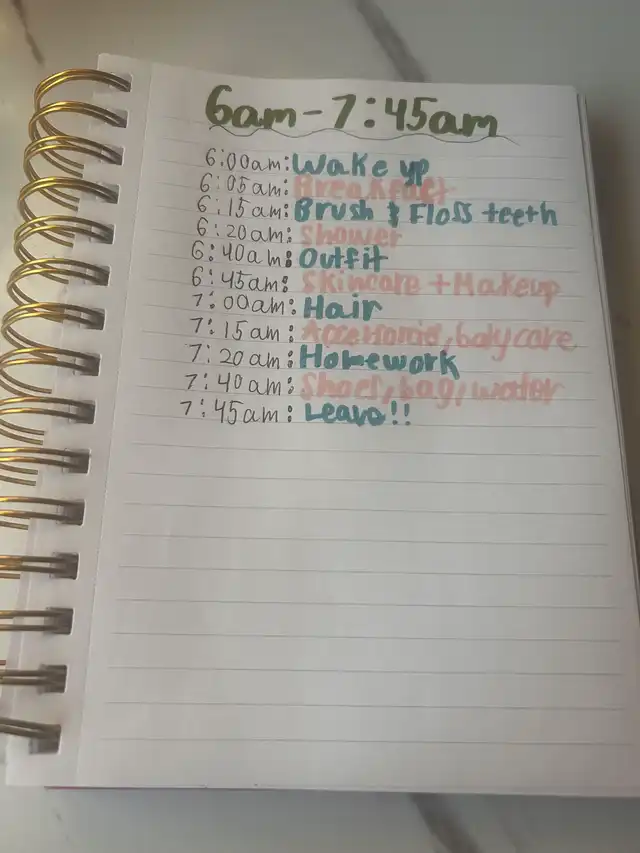 6am-7:45am
6:00am: Wake up
6:05am: Breakfast
6:15am: Brush & Floss teeth
6:20am: Shower
6:40am: Outfit
6:45am: Skincare + Makeup
7:00am: Hair
7:15am: Accessories, bodycare
7:20am: Homework
7:40am: Shoes, bag, water
7:45am: Leave!!